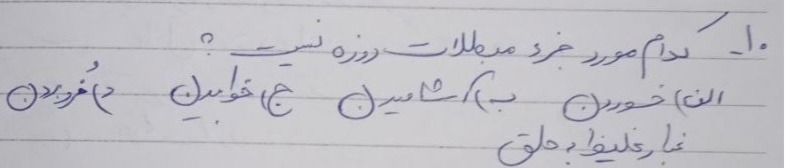 ۱۰- کدام مورد جزء مبطلات روزه نیست؟
الف) خوردن ب) آشامیدن ج) خوابیدن د) فُروبردن
غبار غلیظ به حلق